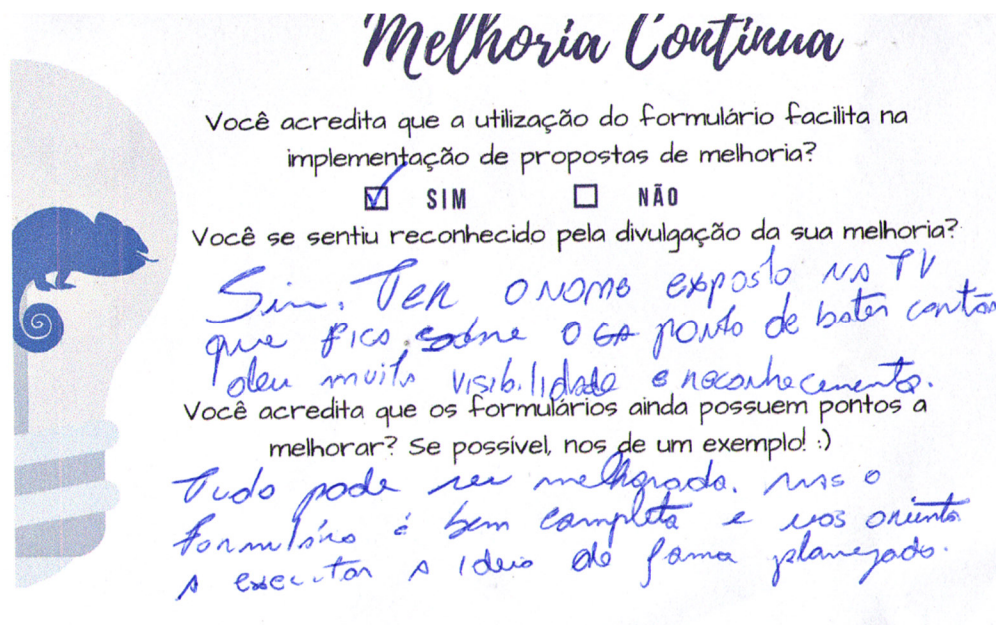 Melhoria Contínua
Você acredita que a utilização do formulário facilita na
implementação de propostas de melhoria?
SIM NÃO
Você se sentiu reconhecido pela divulgação da sua melhoria?
Sim. Ter o nome exposto na TV
que fica sobre o ponto de bater cartão
deu muita visibilidade e reconhecimento.
Você acredita que os formulários ainda possuem pontos a
melhorar? Se possível, nos de um exemplo! :)
Tudo pode ser melhorado. Mas o
formulário é bem completo e nos orienta
a executar a ideia de forma planejado.